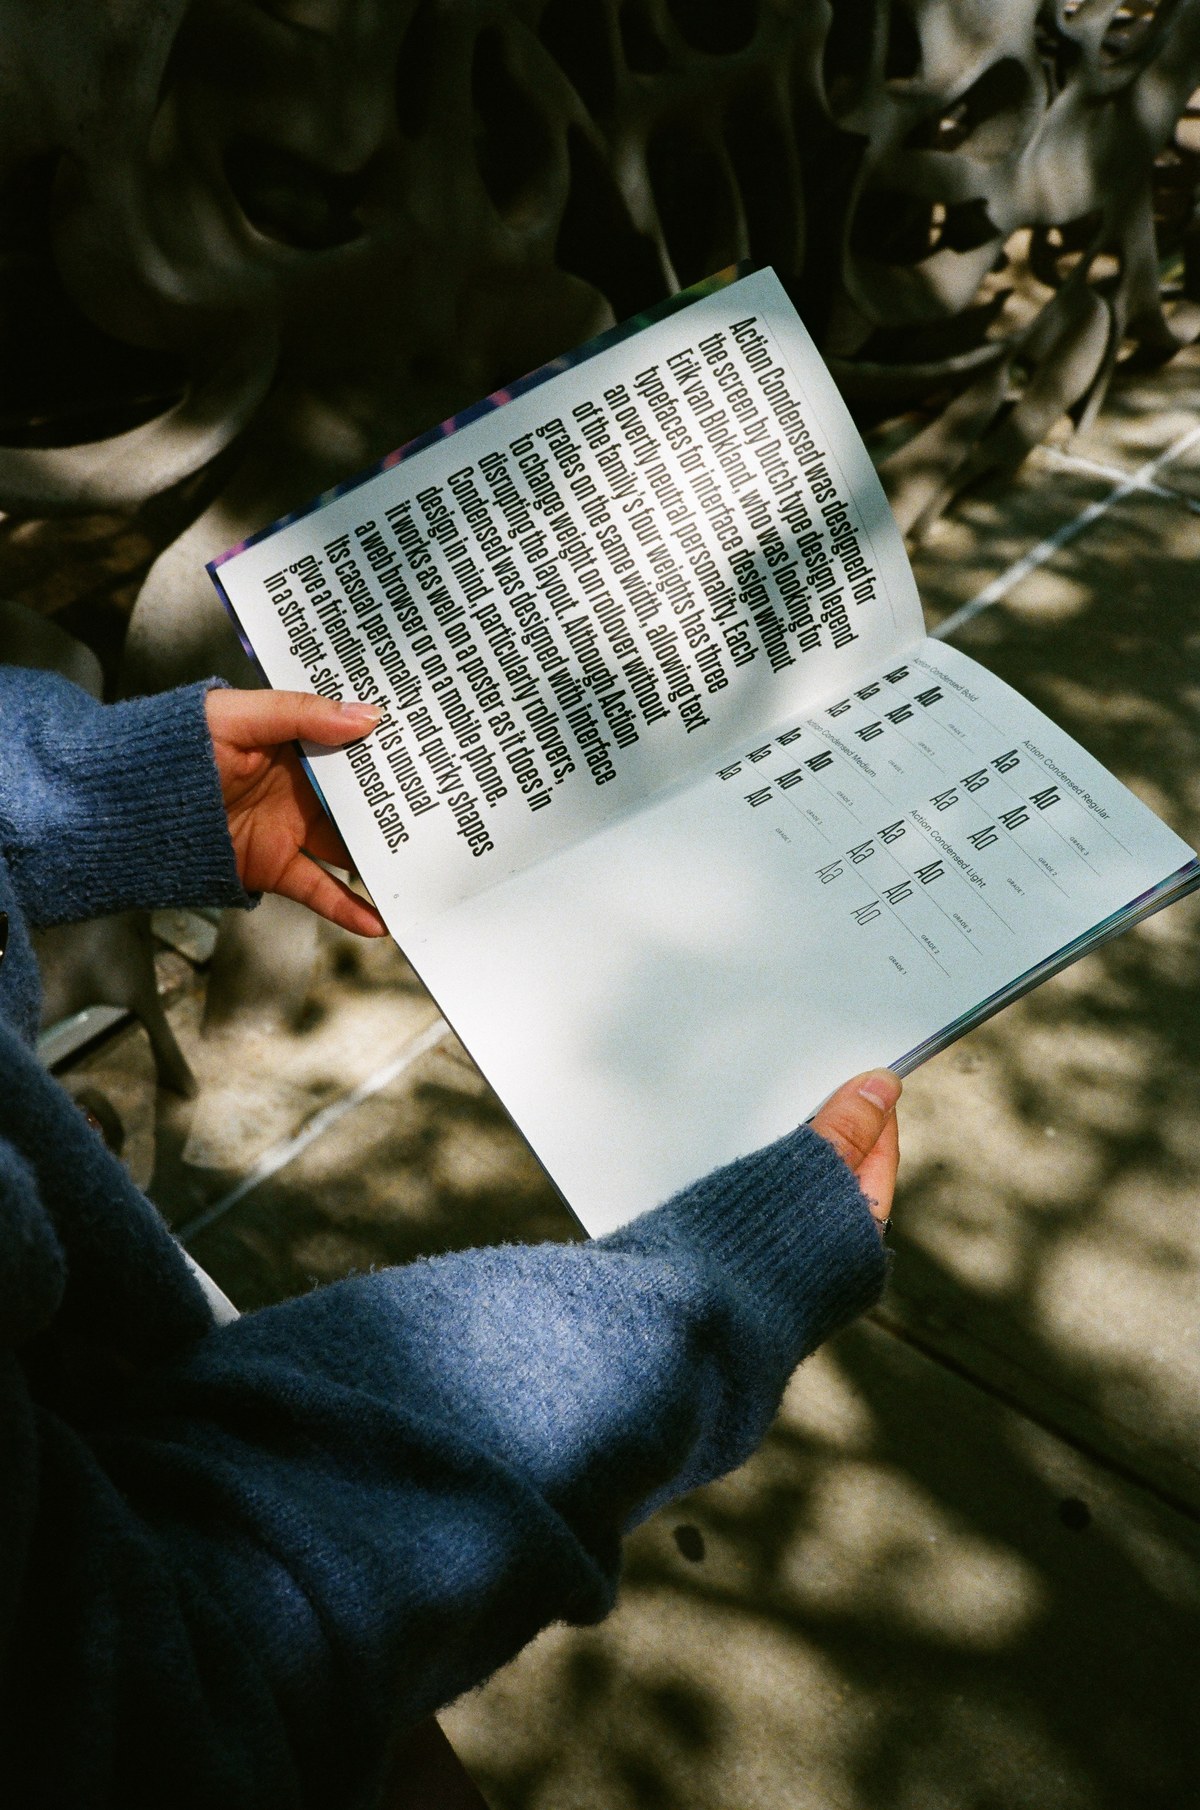 Action Condensed was designed for
the screen by Dutch type design legend
Erik van Blokland, who was looking for
typefaces for interface design without
an overtly neutral personality. Each
of the family's four weights has three
grades on the same width, allowing text
to change weight on rollover without
disrupting the layout. Although Action
Condensed was designed with interface
design in mind, particularly rollovers,
it works as well on a poster as it does in
a web browser or on a mobile phone.
Its casual personality and quirky shapes
give a friendliness that is unusual
in a straight-sided condensed sans.
Action Condensed Bold
Aa Aa
GRADE 3
Aa Aa
GRADE 2
Aa Aa
GRADE 1
Action Condensed Medium
Aa Aa
GRADE 3
Aa Aa
GRADE 2
Aa Aa
GRADE 1
Action Condensed Regular
Aa Aa
GRADE 3
Aa Aa
GRADE 2
Aa Aa
GRADE 1
Action Condensed Light
Aa Aa
GRADE 3
Aa Aa
GRADE 2
Aa Aa
GRADE 1